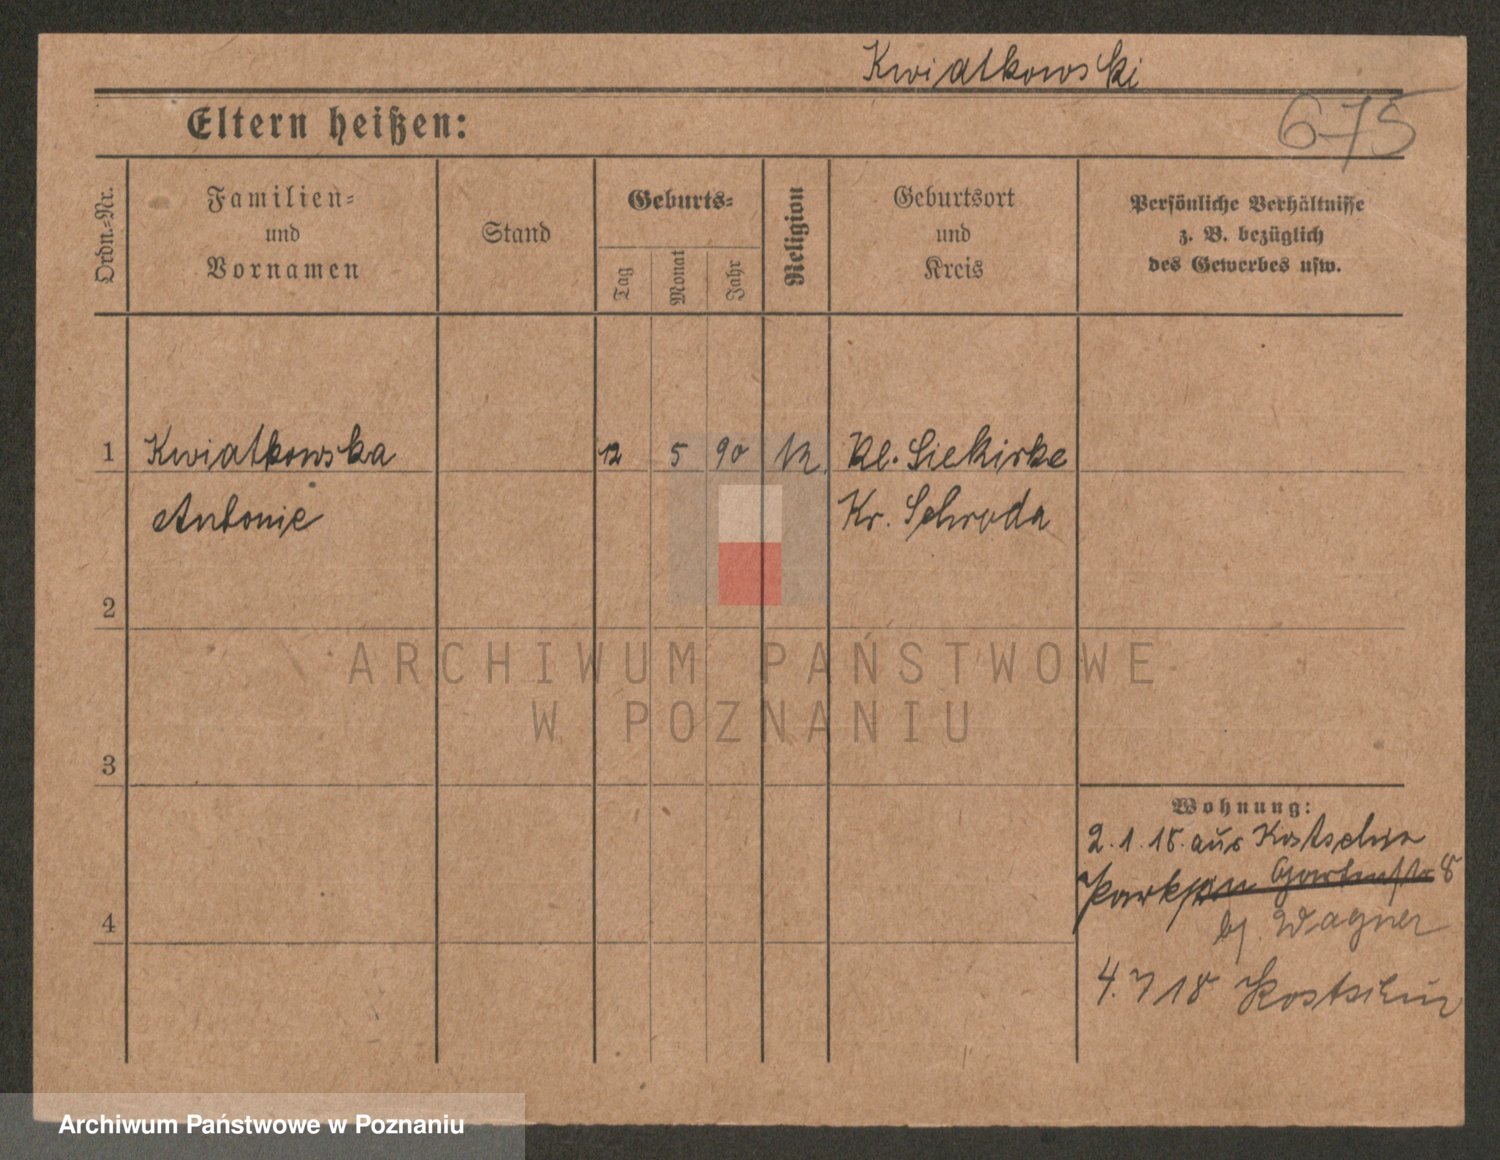 Kwiatkowski
675
Eltern heißen:
Ordn.-Nr.
Familien-
und
Vornamen
Stand
Geburts-
Tag
Monat
Jahr
Religion
Geburtsort
und
Kreis
Persönliche Verhältnisse
z. B. bezüglich
des Gewerbes usw.
1 Kwiatkowska 12 5 90 k. Kl. Siekirke
Antonie Kr. Schroda
2
ARCHIWUM PAŃSTWOWE
W POZNANIU
3
Wohnung:
2.1.18. aus Kostschin
Gartenstr 8
bj. Wagner
4
4.7 18 Kostschin
Archiwum Państwowe w Poznaniu